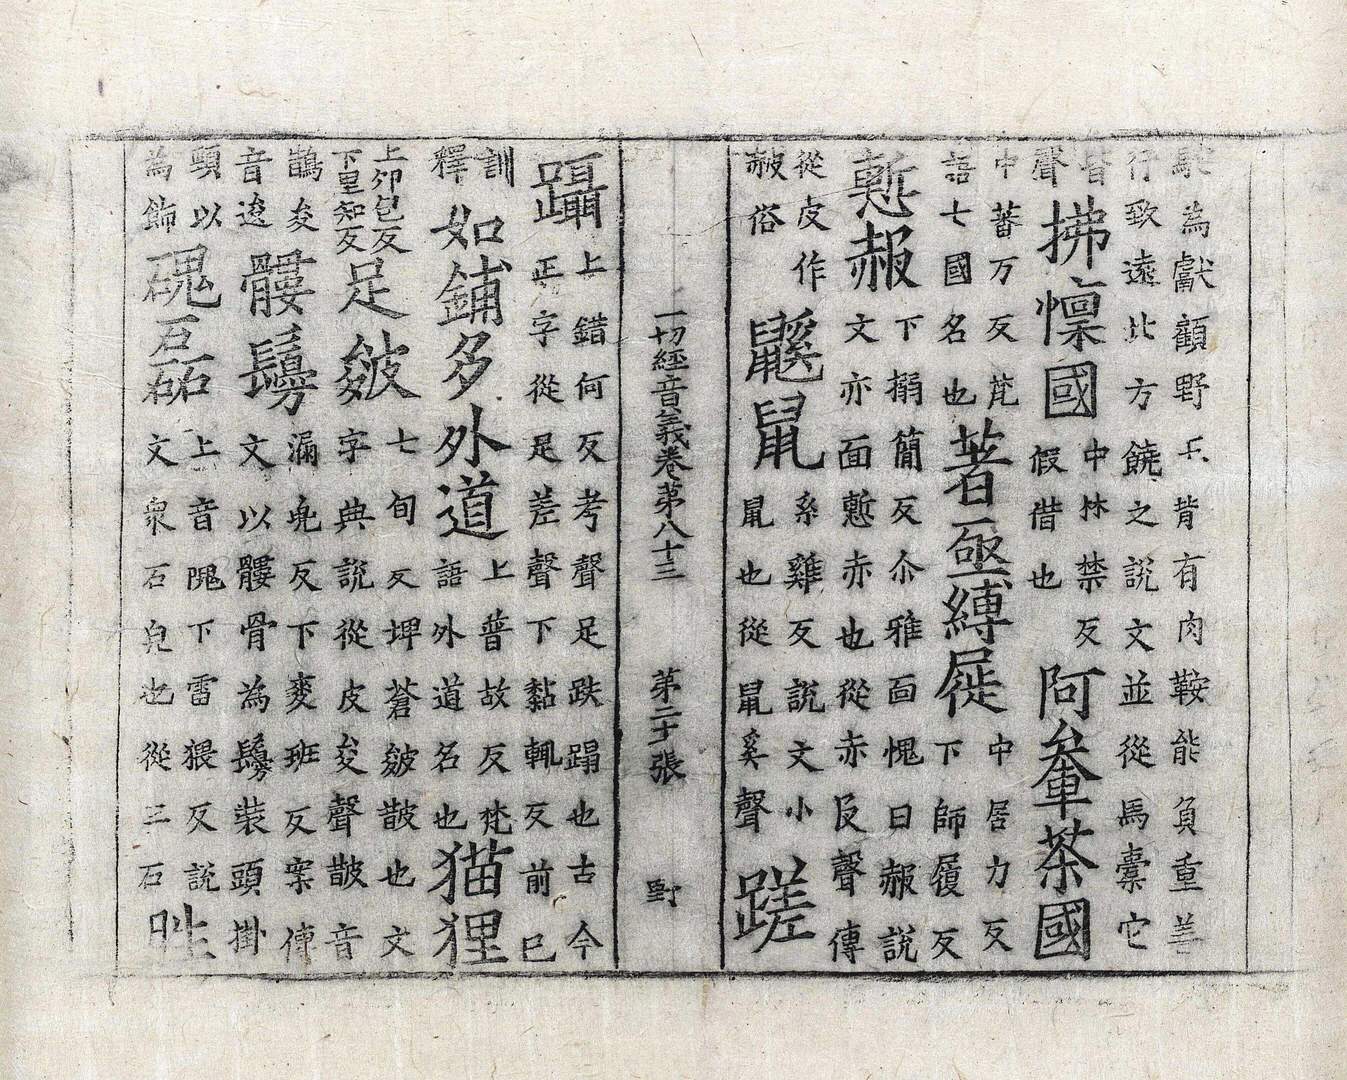 駝為獻顧野王背有肉鞍能負重善
行致遠北方饒之說文並從馬橐它
皆聲拂懍國中林禁反假借也阿輦荼國
中蕃万反梵語七國名也著亟縛屣中居力反下師履反
慙赧下搦簡反尒雅面愧曰赧說文亦面慙赤也從赤𠬝聲傳
從皮作赧俗鼷鼠系雞反說文小鼠也從鼠奚聲蹉
一切經音義卷第八十三 第二十張 野
躡上錯何反考聲足跌蹋也古今正字從足差聲下黏輒反前已
訓釋如鋪多外道上普故反梵語外道名也猫狸
上卯包反下里知反足皴七旬反埤蒼皴皵也文字典說從皮夋聲皵音
鵲夋音逡髏鬘漏兜反下麥班反案傳文以髏骨為鬘裝頭掛
頸以為飾磈磊上音隗下雷猥反說文衆石皃也從三石